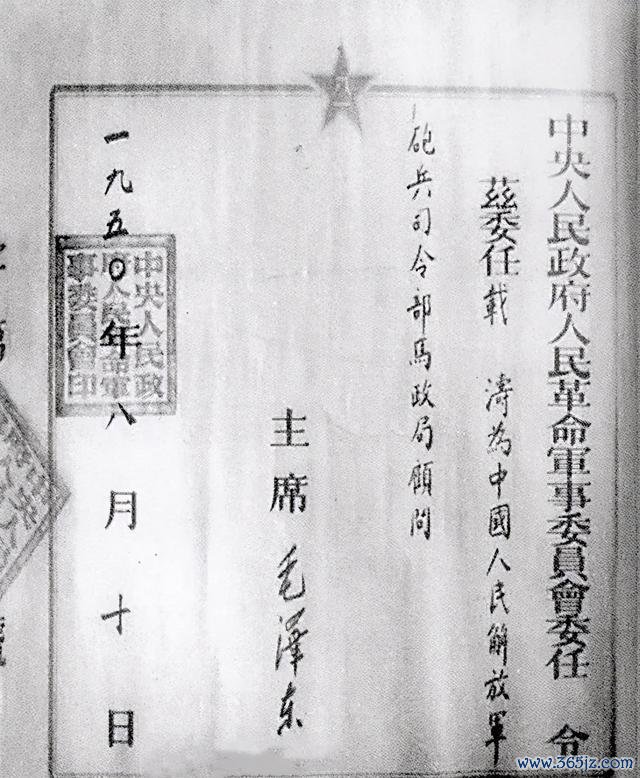 中央人民政府人民革命軍事委員會委任 令
茲委任載 濤為中國人民解放軍
砲兵司令部馬政局顧問
主席 毛泽东
一九五〇年八月十日
中央人民政
府人民革命軍
事委員會印
www.365jz.com